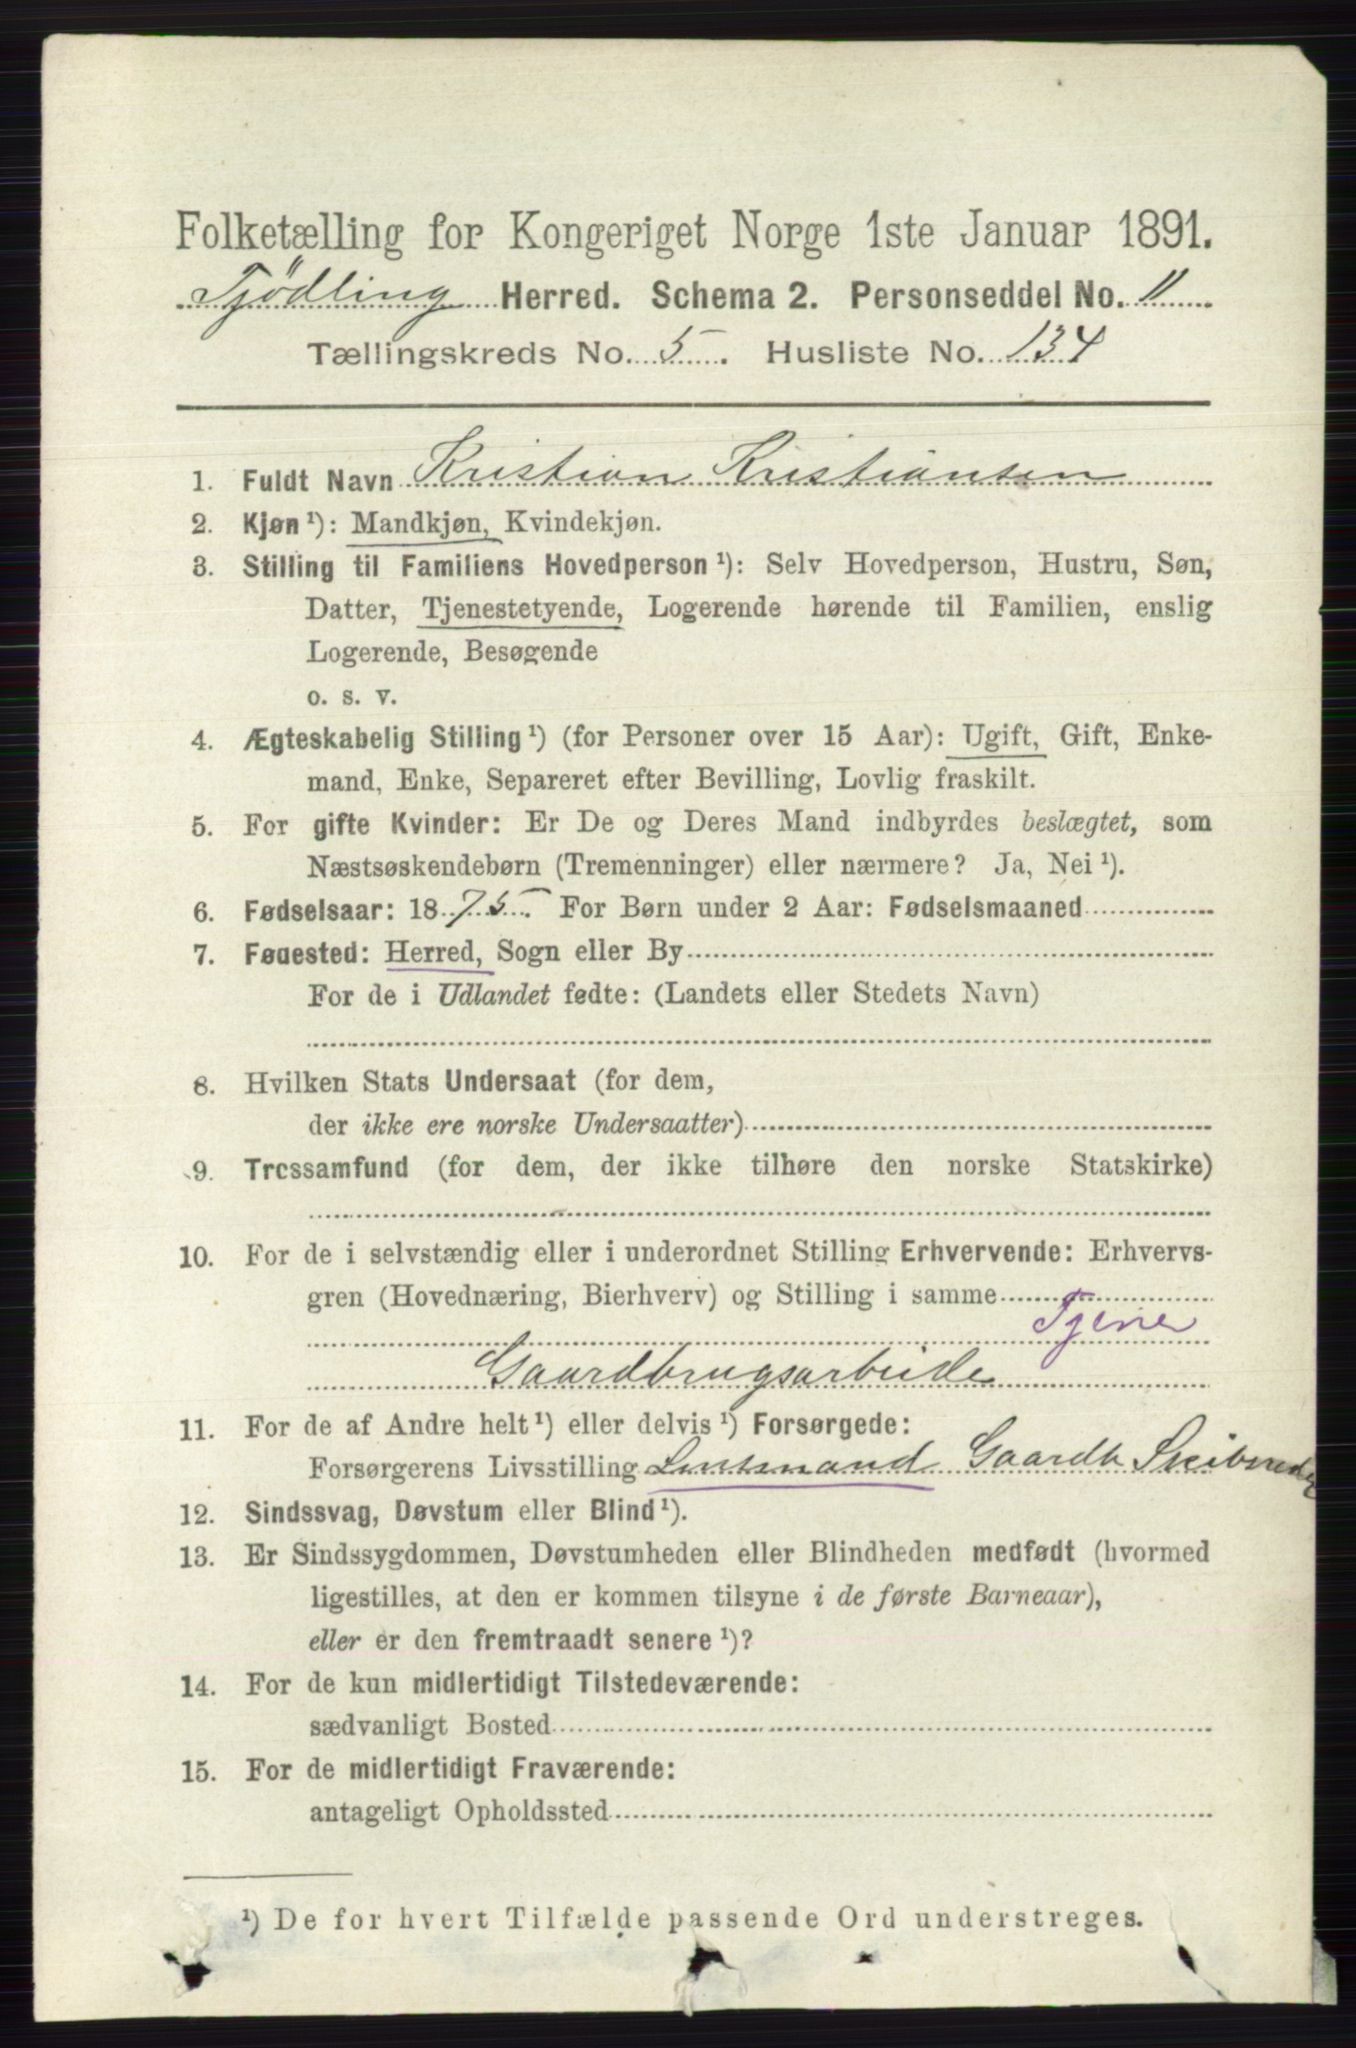 Folketælling for Kongeriget Norge 1ste Januar 1891.
Tjödling Herred. Schema 2. Personseddel No. 11
Tællingskreds No. 5. Husliste No. 134
1. Fuldt Navn Kristian Kristiansen
2. Kjøn ¹): Mandkjøn, Kvindekjøn.
3. Stilling til Familiens Hovedperson ¹): Selv Hovedperson, Hustru, Søn,
Datter, Tjenestetyende, Logerende hørende til Familien, enslig
Logerende, Besøgende
o. s. v.
4. Ægteskabelig Stilling ¹) (for Personer over 15 Aar): Ugift, Gift, Enke-
mand, Enke, Separeret efter Bevilling, Lovlig fraskilt.
5. For gifte Kvinder: Er De og Deres Mand indbyrdes beslægtet, som
Næstsøskendebørn (Tremenninger) eller nærmere? Ja, Nei ¹).
6. Fødselsaar: 1875. For Børn under 2 Aar: Fødselsmaaned
7. Føuested: Herred, Sogn eller By
For de i Udlandet fødte: (Landets eller Stedets Navn)
8. Hvilken Stats Undersaat (for dem,
der ikke ere norske Undersaatter)
9. Trossamfund (for dem, der ikke tilhøre den norske Statskirke)
10. For de i selvstændig eller i underordnet Stilling Erhvervende: Erhvervs-
gren (Hovednæring, Bierhverv) og Stilling i samme
Tjener
Gaardbrugsarbeide
11. For de af Andre helt ¹) eller delvis ¹) Forsørgede:
Forsørgerens Livsstilling Lensmand Gaardb
12. Sindssvag, Døvstum eller Blind ¹).
13. Er Sindssygdommen, Døvstumheden eller Blindheden medfødt (hvormed
ligestilles, at den er kommen tilsyne i de første Barneaar),
eller er den fremtraadt senere ¹)?
14. For de kun midlertidigt Tilstedeværende:
sædvanligt Bosted
15. For de midlertidigt Fraværende:
antageligt Opholdssted
¹) De for hvert Tilfælde passende Ord understreges.